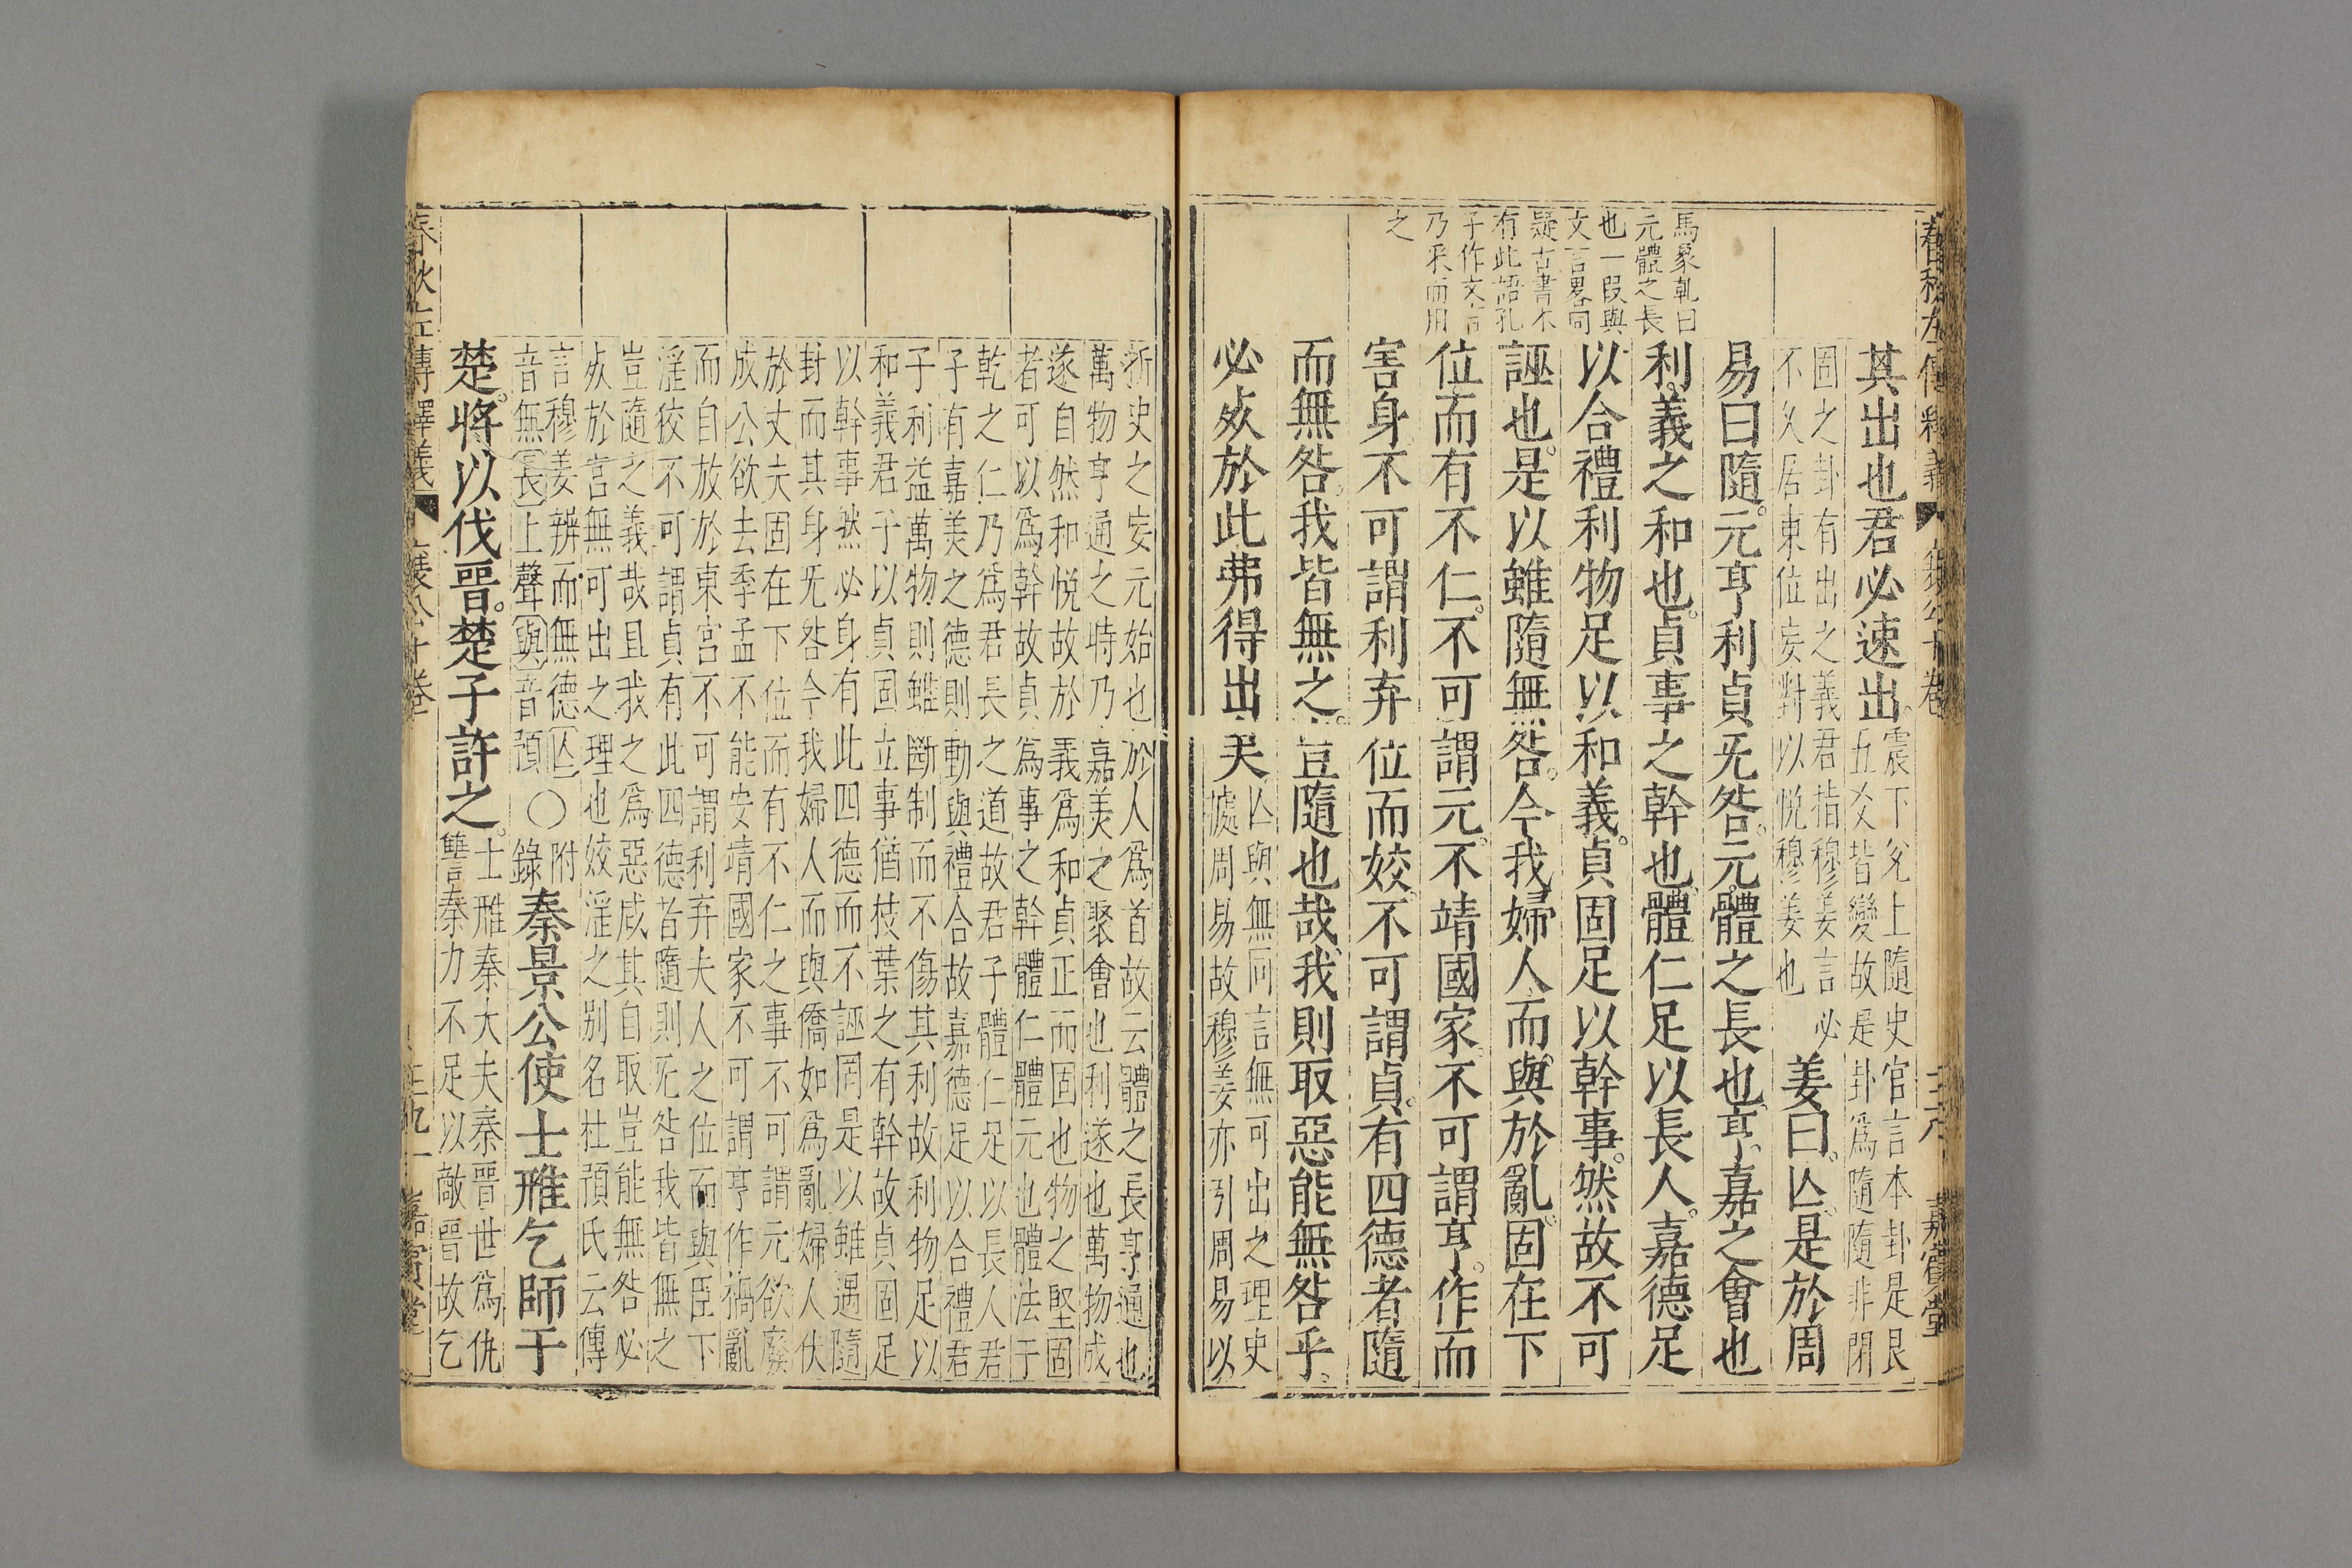 春秋左傳釋義 襄公十卷 三八 嘉賓堂
其出也君必速出。
震下兌上隨史官言本卦是艮
五爻皆變故是卦爲隨隨非閉
固之卦有出之義君指穆姜言必
不久居東位妄對以悅穆姜也
姜曰。亾。是於周
易曰隨。元亨利貞无咎。元體之長也。亨嘉之會也
利。義之和也。貞事之幹也。體仁足以長人。嘉德足
以合禮利物足以和義。貞固足以幹事。然故不可
誣也。是以雖隨無咎。今我婦人。而與於亂。固在下
位而有不仁。不可謂元。不靖國家。不可謂亨。作而
害身。不可謂利弃位而姣。不可謂貞。有四德者隨
而無咎。我皆無之。豈隨也哉。我則取惡能無咎乎。
必死於此弗得出矣
亾與無同言無可出之理史
據周易故穆姜亦引周易以
馬象乹曰
元體之長
也一叚與
文言畧同
疑古書本
有此語孔
子作文言
乃采而用
之
折史之妄元始也於人爲首故云體之長亨通也
萬物亨通之時乃嘉美之聚會也利遂也萬物成
遂自然和悅故於義爲和貞正而固也物之堅固
者可以爲幹故貞爲事之幹體仁體元也體法于
乾之仁乃爲君長之道故君子體仁足以長人君
子有嘉美之德則動與禮合故嘉德足以合禮君
子利益萬物則雖斷制而不傷其利故利物足以
和義君子以貞固立事猶枝葉之有幹故貞固足
以幹事然必身有此四德而不誣罔是以雖遇隨
封而其身无咎今我婦人而與僑如爲亂婦人伏
於丈夫固在下位而有不仁之事不可謂元欲廢
成公欲去季孟不能安靖國家不可謂亨作禍亂
而自放於東宮不可謂利弃夫人之位而與臣下
淫狡不可謂貞有此四德者隨則无咎我皆無之
豈隨之義哉且我之爲惡咸其自取豈能無咎必
死於宮無可出之理也姣淫之別名杜預氏云傳
言穆姜辨而無德亾
音無長上聲與音預
○
附
錄
秦景公使士雃乞師于
楚。將以伐晉。楚子許之。
士雃秦大夫秦晉世爲仇
讐秦力不足以敵晉故乞
春秋左傳釋義 襄公十卷 三九 嘉賓堂